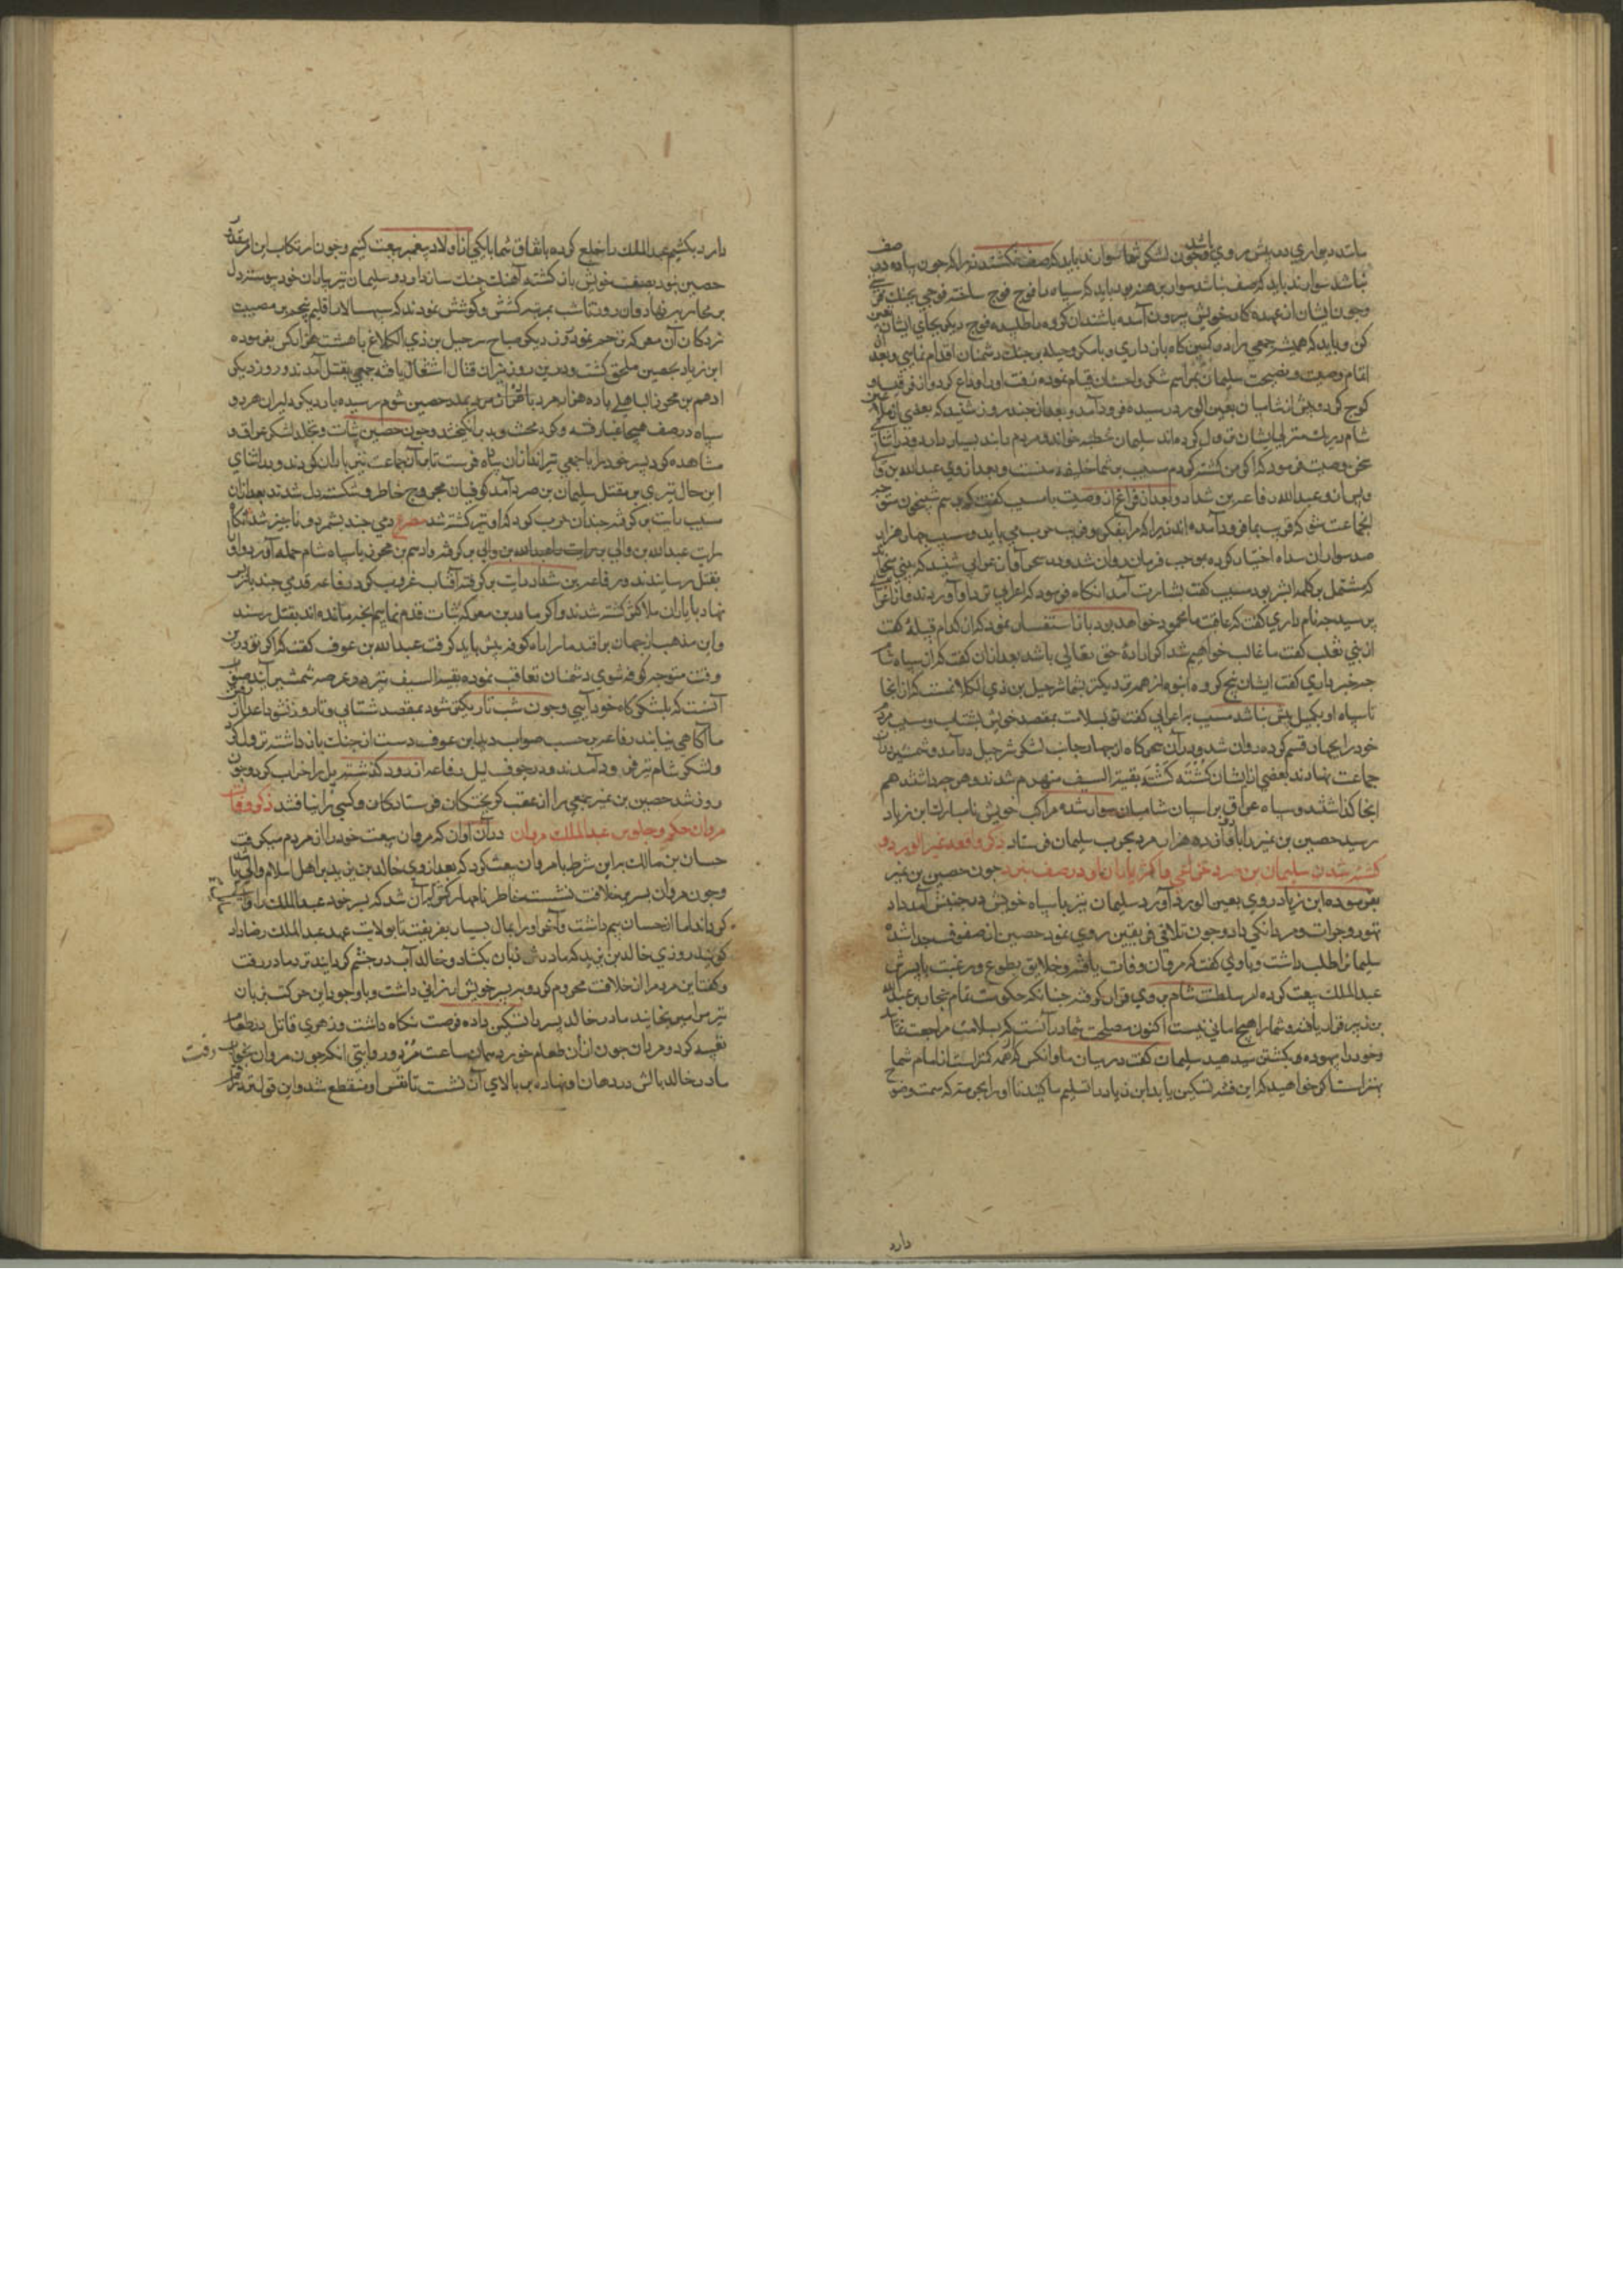 مانند دیواري در پیش روي باشد و چون لشکر شما سوارند باید که صف نکشند زیرا که چون پیاده در صف
نباشد سوارند باید که صف نباشد سواربی هنر بود باید که سپاه را فوج فوج ساخته فوجي بجنك
و چون ایشان از عهدهٔ کار خویش بیرون آمده باشند ان کروه را طلبیده فوج دیکر بجاي ایشان
کن و باید که همیشه جمعي را در کمین کاه بازداري و با مکر و حیله بر جنك دشمنان اقدام نمایي و بعد
اتمام وصیت و نصیحت سلیمان بمراسم شکر و احسان قیام نموده زفت او را وداع کرد و از قرقیسا
کوچ کرد و پیش از شامیان بعین الورد رسیده فرود آمد و بعد از چند روز شنید که بعضي از ملاعین
شام در یك منزلي ایشان نزول کرده اند سلیمان خطبه خواند و مردم را پند بسیار داد و در اثناي
سخن وصیت فرمود که اکر من کشته کردم مسیب بر شما خلیفهٔ منست و بعد از وي عبدالله بن
و پس از و عبدالله رفاعه بن شداد و بعد از فراغ از وصیت با مسیب کفت که برسم شبیخون متوجه
انجماعت شو که قریب بما فرود آمده اند زیرا که مرا بفکر و فریب حرب مي باید و مسیب چهار هزار
صد سوار از سپاه اختیار کرده بموجب فرمان روان شد و در سحر آواز اعرابي شنید که بیتي
که مشتمل بر کلمهٔ ابشر بود مسیب کفت بشارت آمد انکاه فرمود که اعرابي را نزد او آوردند و از اعرابي
پرسید چه نام داري کفت که عاقبت ما محمود خواهد بود باز استفسار نمود که از کدام قبیلهٔ کفت
از بني تغلب کفت ما غالب خواهیم شد اکر ارادهٔ حق تعالي باشد بعد ازان کفت که از سپاه شام
چه خبر داري کفت ایشان پنج کروه انبوه از همه نزدیکتر بشما شرحیل بن ذي الکلاعست که از انجا
تا سپاه او یکمیل بیش نباشد مسیب با اعرابي کفت تو بسلامت بمقصد خویش بشتاب و مسیب مردم
خود را بچهار قسم کرده روان شد و در آن سحرکاه از چهار جانب لشکر شرحیل درآمد و شمشیر در آن
جماعت نهادند بعضي از ایشان کشته کشته بقیة السیف منهزم شدند و هر چه داشتند هم
انجا کذاشتند و سپاه عراق بر اسپان شامیان سوار شده مراکب خویش نامبارك ابن زیاد
رسید حصین بن نمیر را با دوازده هزار مرد بحرب سلیمان فرستاد ذکر واقعه عین الورد و
کشته شدن سلیمان بن صرد خزاعي و اکثر یاران او در صف نبرد چون حصین بن نمیر
بفرمودهٔ ابن زیاد روي بعین الورد آورد سلیمان نیز با سپاه خویش در جنبش آمد داد
تهور و جرات و مردانکي داد و چون تلاقي فریقین روي نمود حصین از صفوف جدا شده
سلیمان را طلب داشت و با وي کفت که مروان وفات یافته و خلایق بطوع و رغبت با پسرش
عبدالملك بیعت کرده امر سلطنت شام بر وي قرار کرفته چنانکه حکومت تمام حجاز بر عبدالله
بن زبیر قرار یافته و شما را هیچ امامي نیست اکنون مصلحت شما در آنست که بسلامت مراجعت نمائید
و خود را بیهوده بکشتن میدهید سلیمان کفت در میان ما و انکس که همه کمتر است از امام شما
بهتر است اکر خواهید که این فتنه تسکین یابد ابن زیاد را تسلیم ما کنید تا او را بجرمي که سمت وضوح
دارد
دارد بکشیم عبدالملك را خلع کرده باتفاق شما با یکي از اولاد پیغمبر بیعت کنیم و چون ارتکاب این امر
حصین نبود بصف خویش باز کشته آهنك جنك ساز داد و سلیمان نیز بیاران خود پیوسته دل
بر محاربه نهاد و ان روز تا شب بمرتبه کشش و کوشش نمودند که سپهسالار اقلیم پنجم بر مصیبت
نزدکان آن معرکه ترحم نمود و روز دیکر صباح شرحیل بن ذي الکلاع با هشت هزار کس بفرموده
ابن زیاد بحصین ملحق کشت و درین روز نیران قتال اشتعال یافته جمعي بقتل آمدند و روز دیکر
ادهم بن محرز الباهلي با ده هزار مرد بمدد حصین شوم رسیده بار دیکر دلیران هر دو
سپاه در صف هیجا غبار فتنه و کرد محشر برانکیختند و چون حصین ثبات و تجلد لشکر عراق را
مشاهده کرد پسر خود را با جمعي تیراندازان پیاده فرستاد تا بر آن جماعت تیر باران کردند و در اثناي
این حال تیري بر مقتل سلیمان بن صرد آمد کوفیان مجروح خاطر و شکسته دل شدند بعد ازان
مسیب رایت بر کرفته چندان حرب کرد که او نیز کشته شد مصرع دمي چند بشمرد و ناچیز شد انکاه
رایت عبدالله بن والي بر کرفته و ادهم بن محرز با سپاه شام حمله آورد و او را
بقتل رسانیدند و رفاعه بن شداد رایت بر کرفته آفتاب غروب کرد و رفاعه قدمي چند باز پس
نهاد با یاران ملا کفت کشته شدند و اکر ما درین معرکه ثبات قدم نمائیم انچه مانده اند بقتل رسند
و این مذهب از جهان برافتد ما را راه کوفه پیش باید کرفت عبدالله بن عوف کفت که اکر تو درین
وقت متوجه کوفه شوي دشمنان تعاقب نموده بقیة السیف نیز در عرصهٔ شمشیر آیند صلاح
آنست که بلشکرکاه خود آیي و چون شب تاریکتر شود بمقصد شتابي و تا روز شود اعدا از
ما آکاهي نیابند رفاعه بر حسب صواب دید ابن عوف دست از جنك باز داشته نزول کرد
و لشکر شام نیز فرود آمدند و در جوف لیل رفاعه از رود کذشته پل را خراب کرد و چون
روز شد حصین بن نمیر جمعي را از عقب کریختکان فرستاد کان و کسي را نیافتند ذکر وفات
مروان حکم و جلوس عبدالملك مروان در آن آوان که مروان بیعت خود را از مردم میکرفت
حسان بن مالك بر این شرط با مروان بیعت کرد که بعد از وي خالد بن یزید بر اهل اسلام والي باشد
و چون مروان بسریر خلافت نشست خاطر نامبارکش بران شد که پسر خود عبدالملك را ولیعهد
کرداند اما از حسان بیم داشت و آخر او را بمال بسیار بفریفت تا بولایت عهد عبدالملك رضا داد
کویند روزي خالد بن یزید که مادرش زبان بکشاد و خالد آب در چشم کردانید نزد مادر رفت
و کفت این مرد مرا از خلافت محروم کرد و بر پسر خویش ارزاني داشت و با وجود این حرکت بزبان
نیز مرا میرنجانید مادر خالد پسر را تسکین داده فرصت نکاه داشت و زهري قاتل در طعام
تعبیه کرد و مروان چون ازان طعام خورد همان ساعت مرد و روایتي انکه چون مروان بخواب رفت
مادر خالد بالش در دهان او نهاده بر بالاي آن نشست تا نفس او منقطع شد و این قول